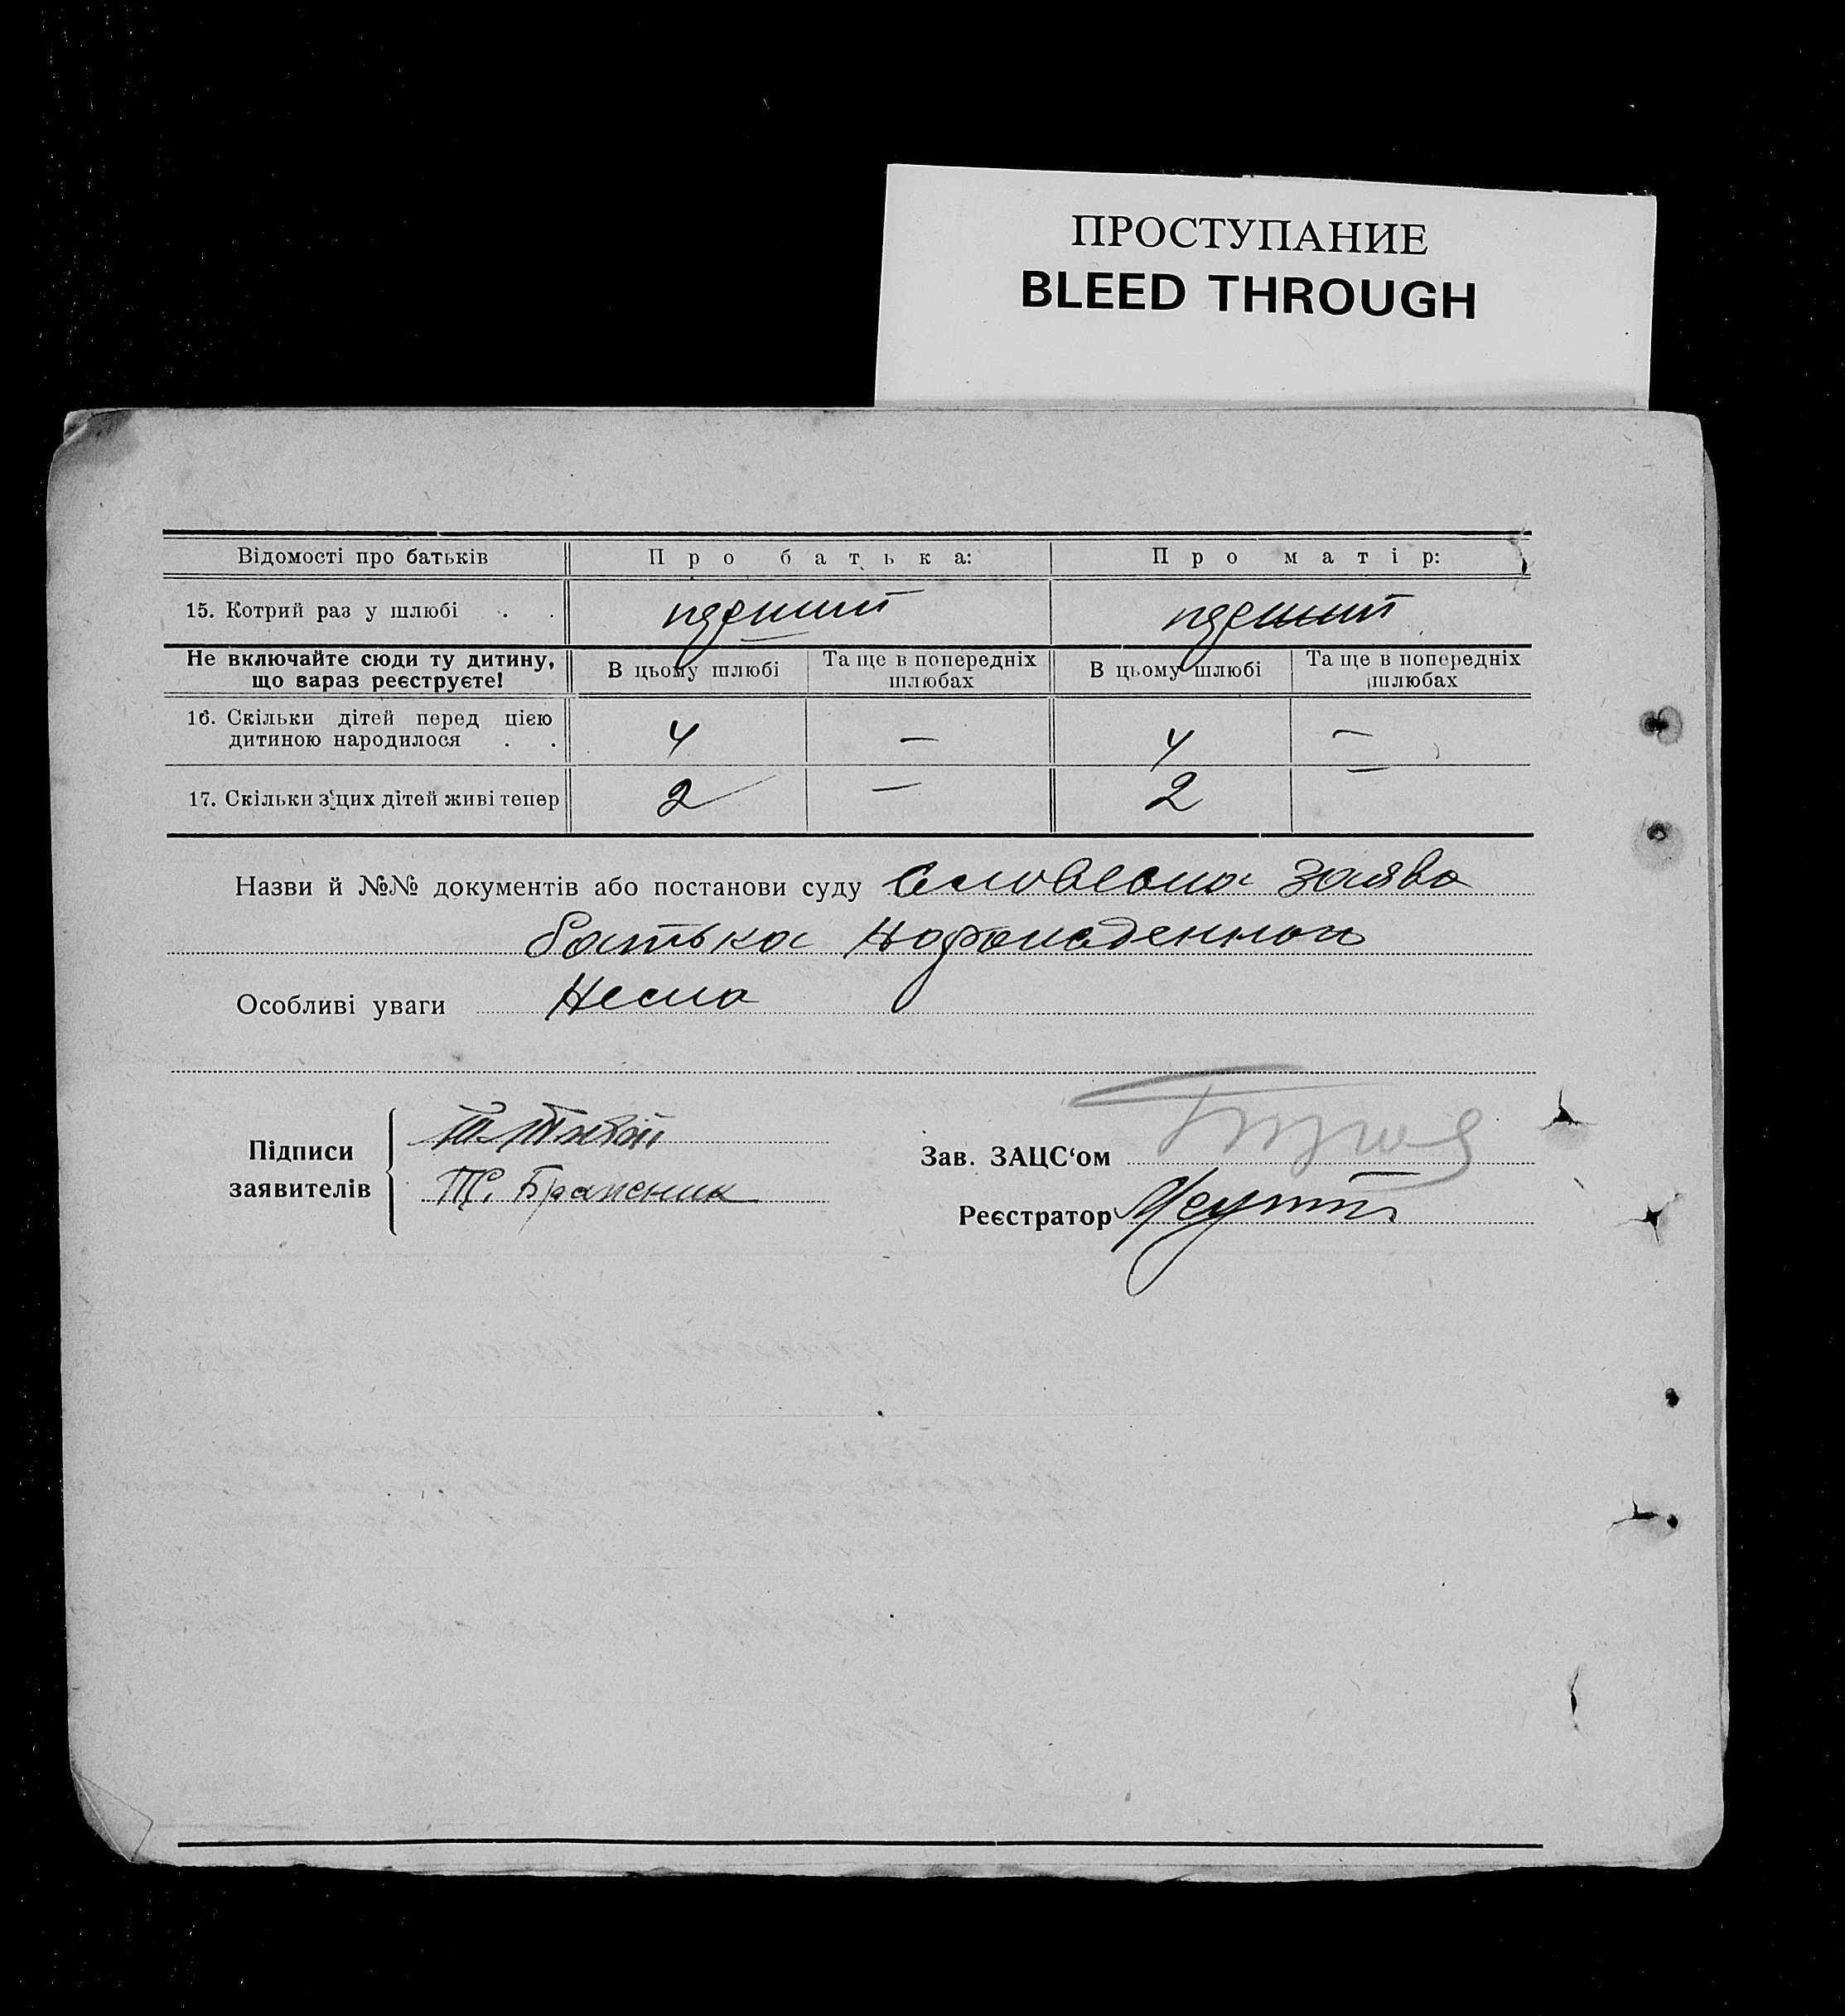 ПРОСТУПАНИЕ
BLEED THROUGH
Відомості про батьків
Про батька:
Про матір:
15. Котрий раз у шлюбі . .
Не включайте сюди ту дитину,
що вараз реєструєте!
В цьому шлюбі
Та ще в попередніх
шлюбах
В цьому шлюбі
Та ще в попередніх
шлюбах
16. Скільки дітей перед цією
дитиною народилося . .
4
—
4
—
17. Скільки з цих дітей живі тепер
2
—
2
—
Назви й №№ документів або постанови суду Словесна заява
батька
Особливі уваги Нема
Підписи
заявителів
Зав. ЗАЦС‘ом
Реєстратор